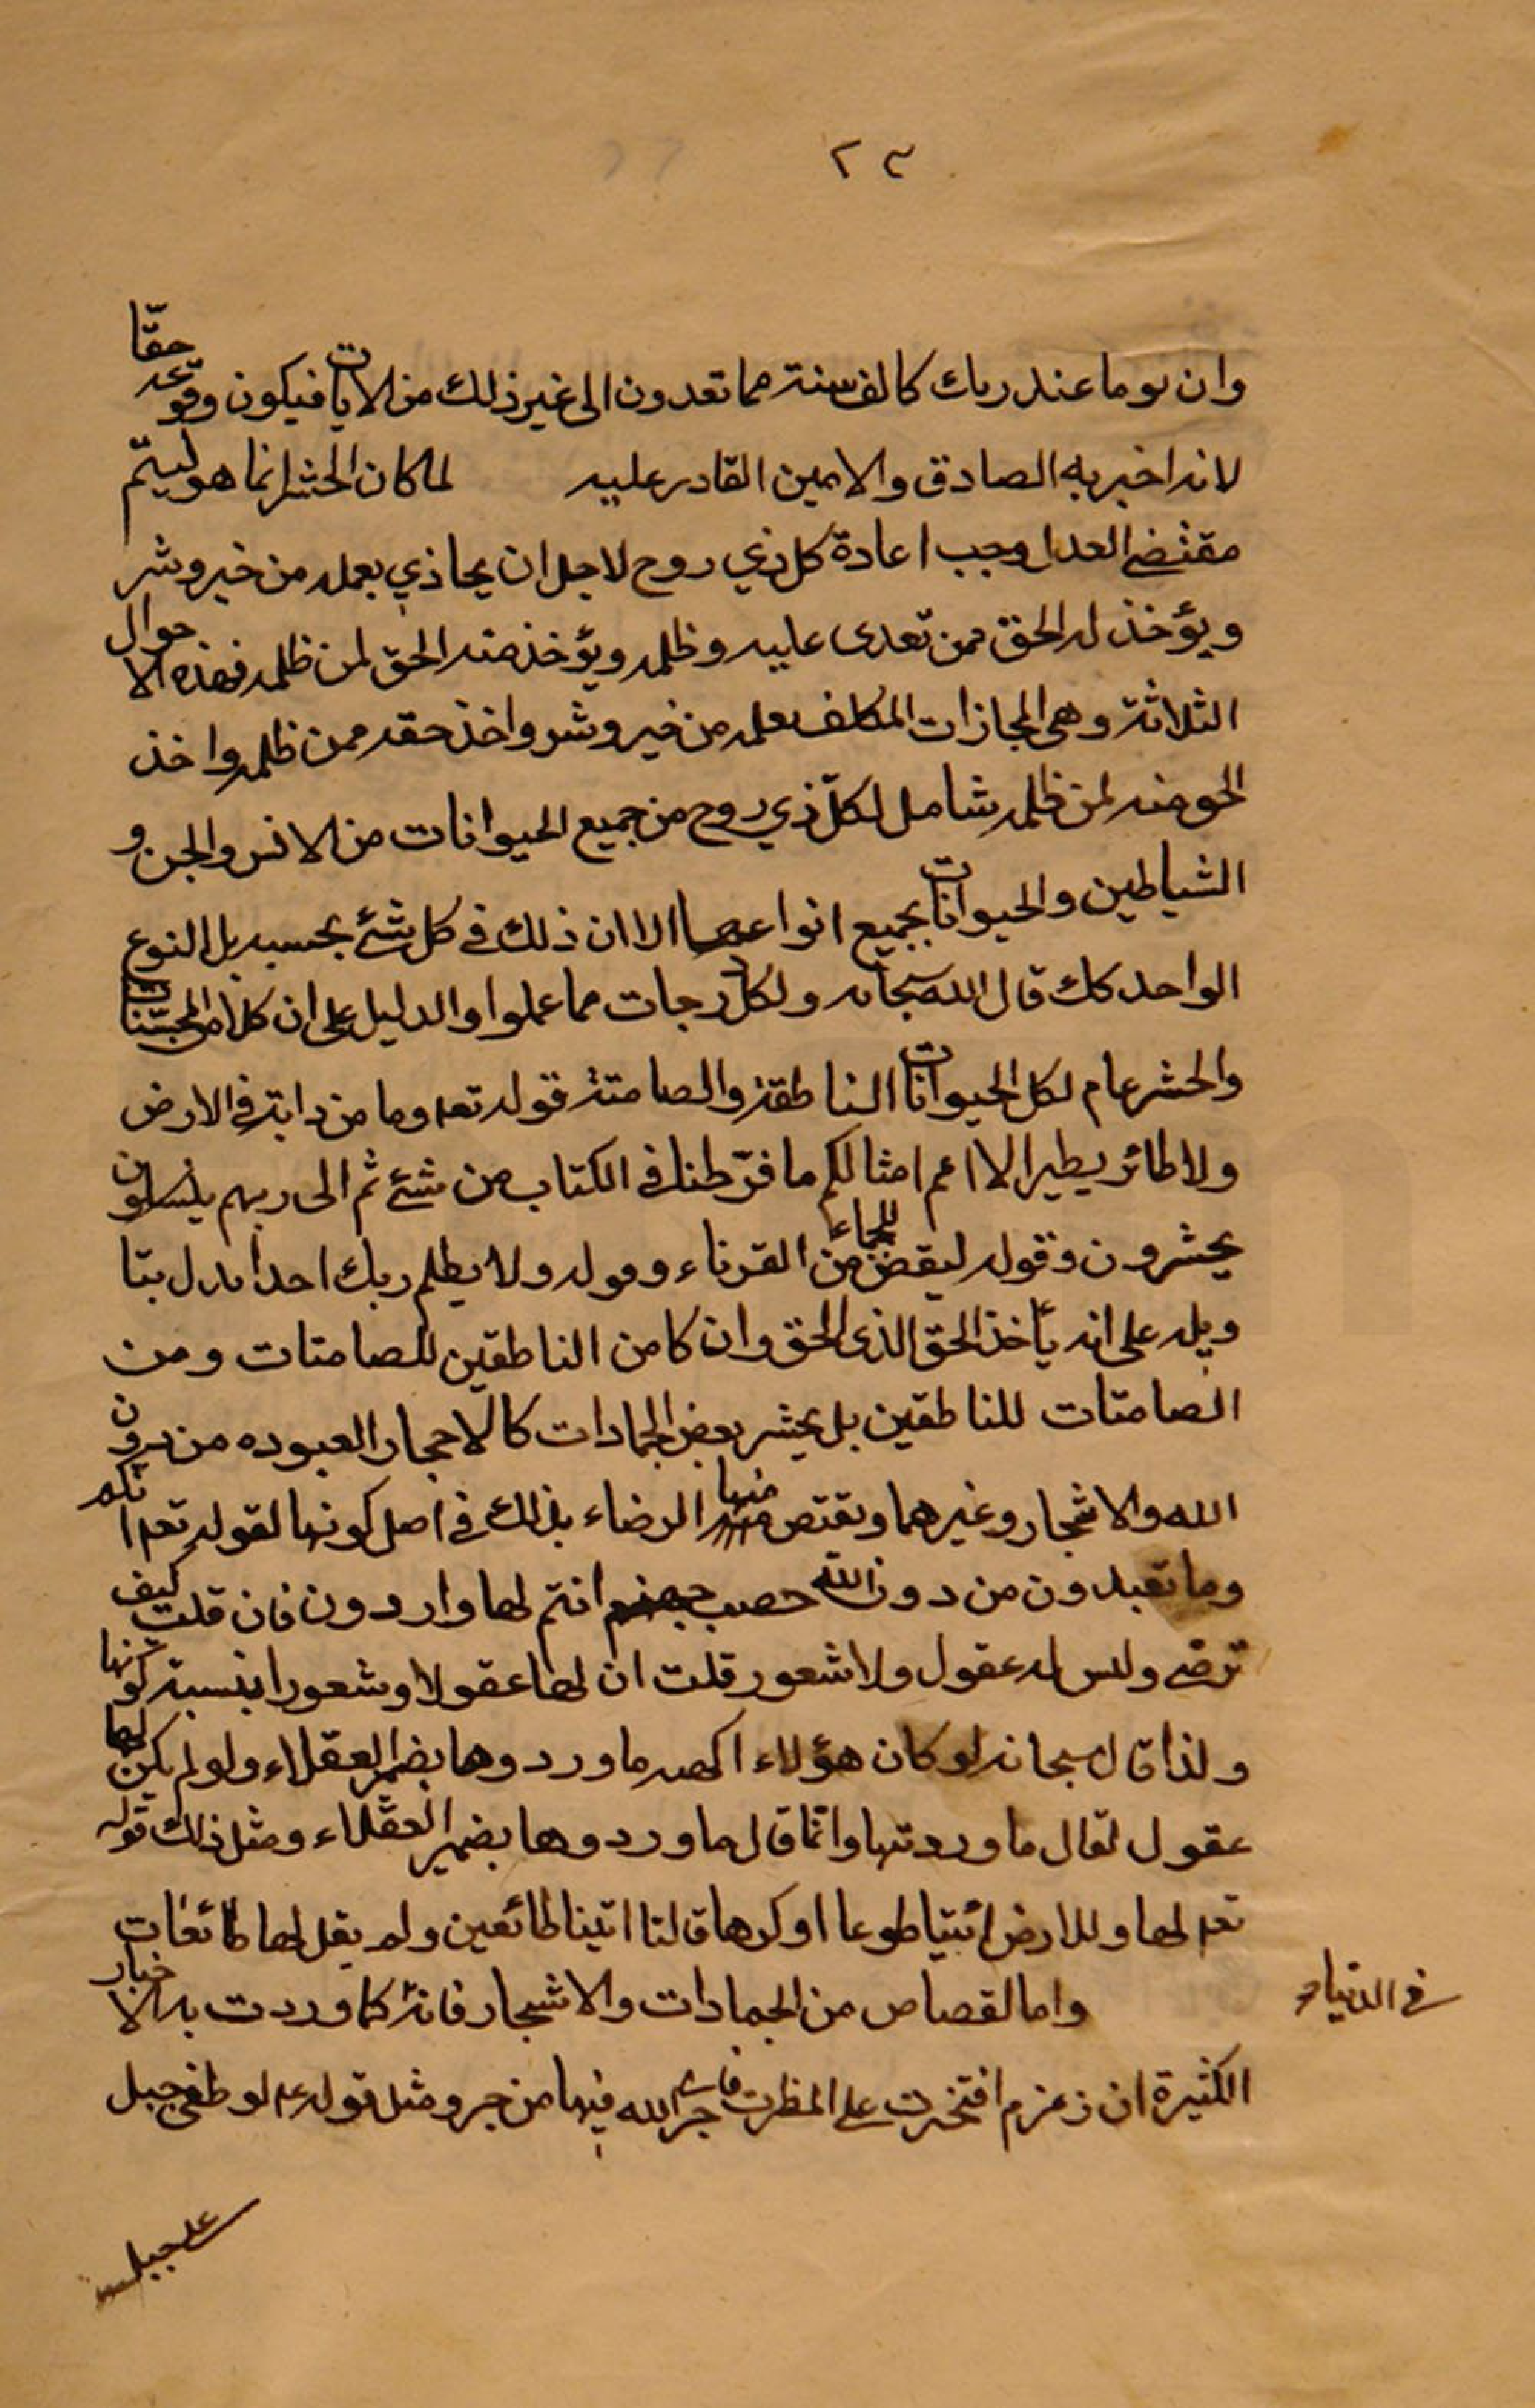 ٢٣
وان يوما عند ربك كالف سنة مما تعدون الى غير ذلك من الايات فيكون وقوعه حقّا
لانه اخبر به الصادق والامين القادر عليه لما كان الحشر انما هو ليتمّ
مقتضى العدل وجب اعادة كل ذي روح لاجل ان يجاذي بعمله من خير وشر
ويؤخذ له الحق ممن تعدى عليه وظلمه ويؤخذ منه الحق لمن ظلمه فهذه الاحوال
الثلاثة وهى المجازات المكلف بعمله من خير وشر واخذ حقه ممن ظلمه واخذ
الحق منه لمن ظلمه شامل لكلّ ذي روح من جميع الحيوانات من الانس والجن و
الشياطين والحيوانات بجميع انواعها الا ان ذلك في كل شئ بحسبه بل النوع
الواحد كك قال الله سبحانه ولكل درجات مما عملوا والدليل على ان كلا من
والحشر عام لكل الحيوانات الناطقة والصامتة قوله تعه وما من دابة في الارض
ولا طائر يطير الا امم امثالكم ما فرّطنا في الكتاب من شئ ثم الى ربهم ينسلون
يحشرون وقوله ليقض للجماء من القرناء وقوله ولا يظلم ربك احدا يدل
ويله على انه يأخذ الحق الذى الحق وان كا من الناطقين للصامتات ومن
الصامتات للناطقين بل يحشر بعض الجمادات كالاحجار العبوده من دون
الله والاشجار وغيرهما ويقتص منها الرضاء بذلك في اصل كونها لقوله تعه انكم
وما تعبدون من دون الله حصب جهنم انتم لها واردون فان قلت كيف
ترضى وليس له عقول ولا شعور قلت ان لها عقولا وشعورا بنسبة كونها
ولذا قال سبحانه لو كان هؤلاء الهه ما وردوها بضمير العقلاء ولو لم يكن لها
عقول لقال ما وردتها وانّما قال ما وردوها بضمير العقلاء ومثل ذلك قوله
تعه لها وللارض ائتيا طوعا او كرها قالتا اتينا طائعين ولم يقل لها طائعات
واما لقصاص من الجمادات والاشجار فانه كما وردت به الاخبار
في الدنيا
الكثيرة ان زمزم افتخرت على الفرات فاجرى الله فيها من جر ومثل قوله عم لو طغى جبل
على جبل